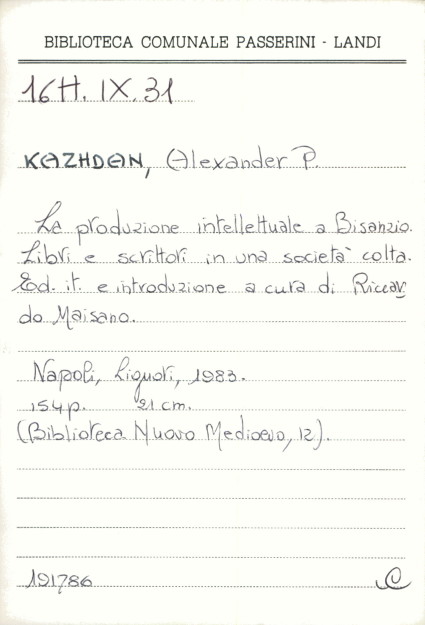 BIBLIOTECA COMUNALE PASSERINI - LANDI
16H. IX. 31
KAZHDAN, Alexander P.
La produzione intellettuale a Bisanzio.
Libri e scrittori in una società colta.
Ed. it. e introduzione a cura di Riccar
do Maisano.
Napoli, Liguori, 1983.
154 p. 21 cm.
(Biblioteca Nuovo Medioevo, 12).
191786 C